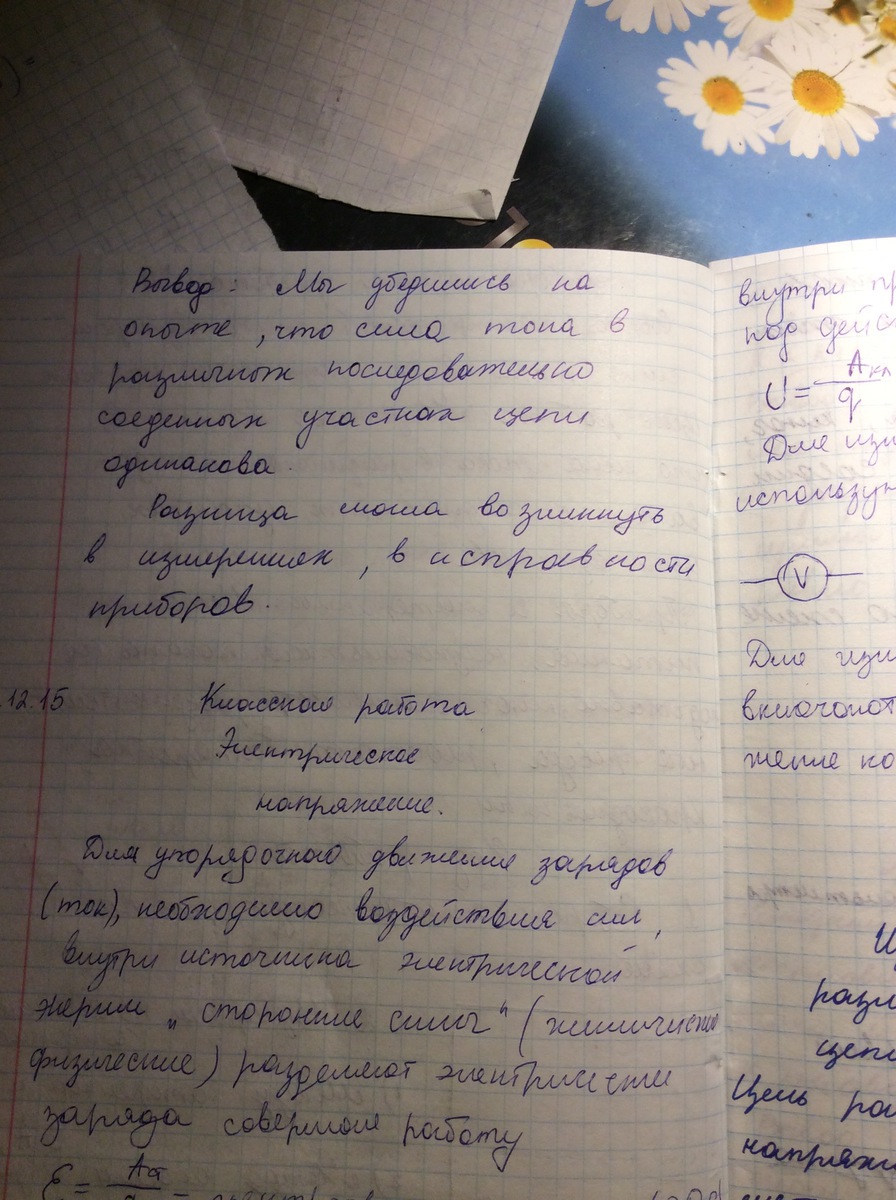 Вывод: Мы убедились на
опыте, что сила тока в
различных последовательно
соеденных участках цепи
одинакова.
Разница могла возникнуть
в измерениях, в исправности
приборов.
.12.15 Классная работа
Электрическое
напряжение.
Для упорядочного движения зарядов
(ток), необходимо воздействия сил,
внутри источника электрической
энергии "сторонние силы" (химические
физические) разделяют электрически
заряда совершая работу
Ɛ = Aст
внутри пр
под дейс
U = Aкл
q
Для изм
использую
V
Для изм
включают
жение ко
разл
цепи
Цель ра
напряж